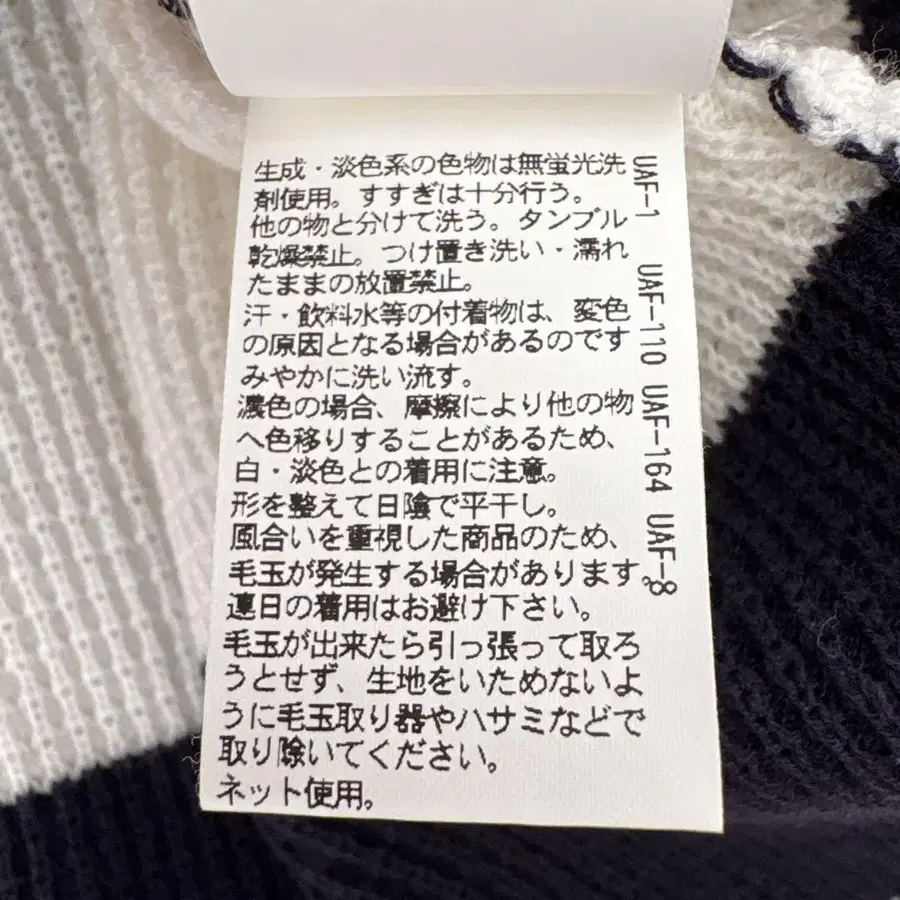 生成・淡色系の色物は無蛍光洗
剤使用。すすぎは十分行う。
他の物と分けて洗う。タンブル
乾燥禁止。つけ置き洗い・濡れ
たままの放置禁止。
汗・飲料水等の付着物は、変色
の原因となる場合があるのです
みやかに洗い流す。
濃色の場合、摩擦により他の物
へ色移りすることがあるため、
白・淡色との着用に注意。
形を整えて日陰で平干し。
風合いを重視した商品のため、
毛玉が発生する場合があります。
連日の着用はお避け下さい。
毛玉が出来たら引っ張って取ろ
うとせず、生地をいためないよ
うに毛玉取り器やハサミなどで
取り除いてください。
ネット使用。
UAF-1 UAF-110 UAF-164 UAF-8